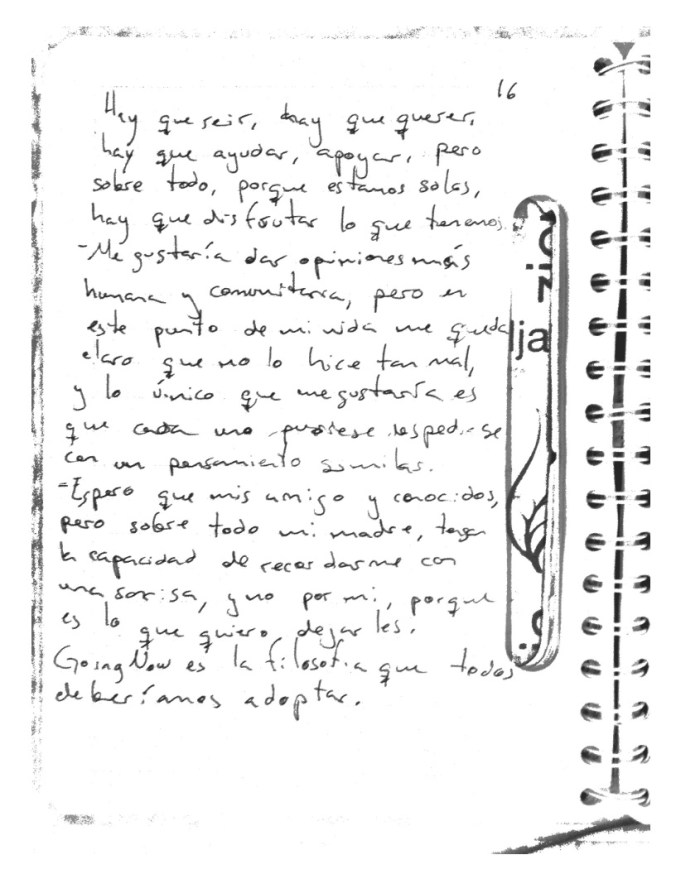 16
Hay que reir, hay que querer,
hay que ayudar, apoyar, pero
sobre todo, porque estamos solas,
hay que disfrutar lo que tenemos.
-Me gustaría dar opiniones más
humana y comunitaria, pero en
este punto de mi vida me queda
claro que no lo hice tan mal,
y lo único que me gustaría es
que cada uno pudiese despedirse
con un pensamiento similar.
-Espero que mis amigo y conocidos,
pero sobre todo mi madre, tengan
la capacidad de recordarme con
una sonrisa, y no por mi, porque
es lo que quiero dejarles.
Going Now es la filosofia que todos
deberíamos adoptar.
lja